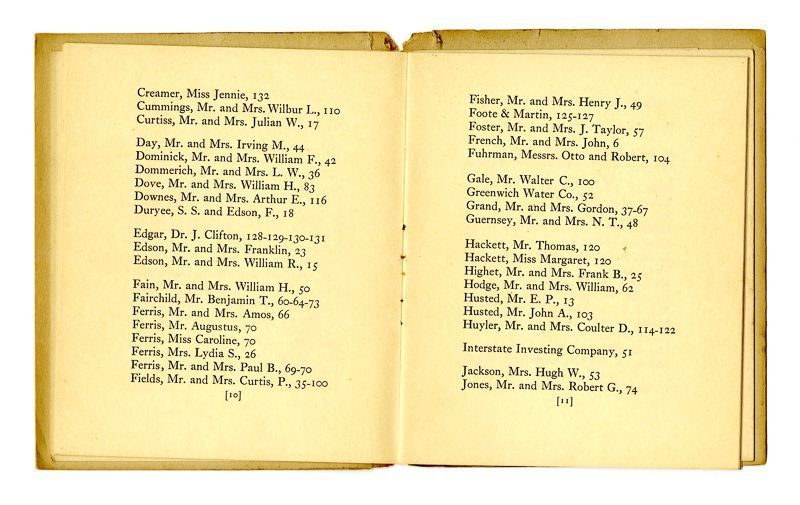 Creamer, Miss Jennie, 132
Cummings, Mr. and Mrs. Wilbur L., 110
Curtiss, Mr. and Mrs. Julian W., 17
Day, Mr. and Mrs. Irving M., 44
Dominick, Mr. and Mrs. William F., 42
Dommerich, Mr. and Mrs. L. W., 36
Dove, Mr. and Mrs. William H., 83
Downes, Mr. and Mrs. Arthur E., 116
Duryee, S. S. and Edson, F., 18
Edgar, Dr. J. Clifton, 128-129-130-131
Edson, Mr. and Mrs. Franklin, 23
Edson, Mr. and Mrs. William R., 15
Fain, Mr. and Mrs. William H., 50
Fairchild, Mr. Benjamin T., 60-64-73
Ferris, Mr. and Mrs. Amos, 66
Ferris, Mr. Augustus, 70
Ferris, Miss Caroline, 70
Ferris, Mrs. Lydia S., 26
Ferris, Mr. and Mrs. Paul B., 69-70
Fields, Mr. and Mrs. Curtis, P., 35-100
[10]
Fisher, Mr. and Mrs. Henry J., 49
Foote & Martin, 125-127
Foster, Mr. and Mrs. J. Taylor, 57
French, Mr. and Mrs. John, 6
Fuhrman, Messrs. Otto and Robert, 104
Gale, Mr. Walter C., 100
Greenwich Water Co., 52
Grand, Mr. and Mrs. Gordon, 37-67
Guernsey, Mr. and Mrs. N. T., 48
Hackett, Mr. Thomas, 120
Hackett, Miss Margaret, 120
Highet, Mr. and Mrs. Frank B., 25
Hodge, Mr. and Mrs. William, 62
Husted, Mr. E. P., 13
Husted, Mr. John A., 103
Huyler, Mr. and Mrs. Coulter D., 114-122
Interstate Investing Company, 51
Jackson, Mrs. Hugh W., 53
Jones, Mr. and Mrs. Robert G., 74
[11]